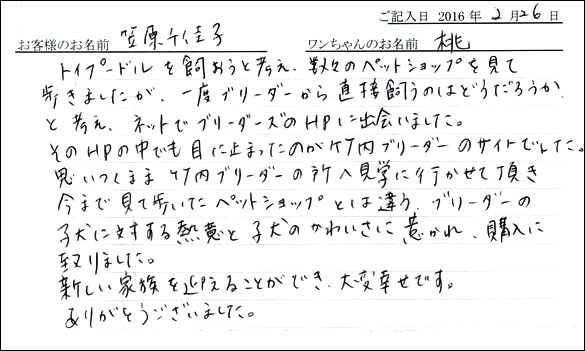 ご記入日 2016年 2月26日
お客様のお名前 笠原千佳子 ワンちゃんのお名前 桃
トイプードルを飼おうと考え、数々のペットショップを見て
歩きましたが、一度ブリーダーから直接飼うのはどうだろうか
と考え、ネットでブリーダーズのHPに出会いました。
そのHPの中でも目に止まったのが竹内ブリーダーのサイトでした。
思いつくまま竹内ブリーダーの所へ見学に行かせて頂き
今まで見て歩いたペットショップとは違う、ブリーダーの
子犬に対する熱意と子犬のかわいさに惹かれ、購入に
至りました。
新しい家族を迎えることができ、大変幸せです。
ありがとうございました。